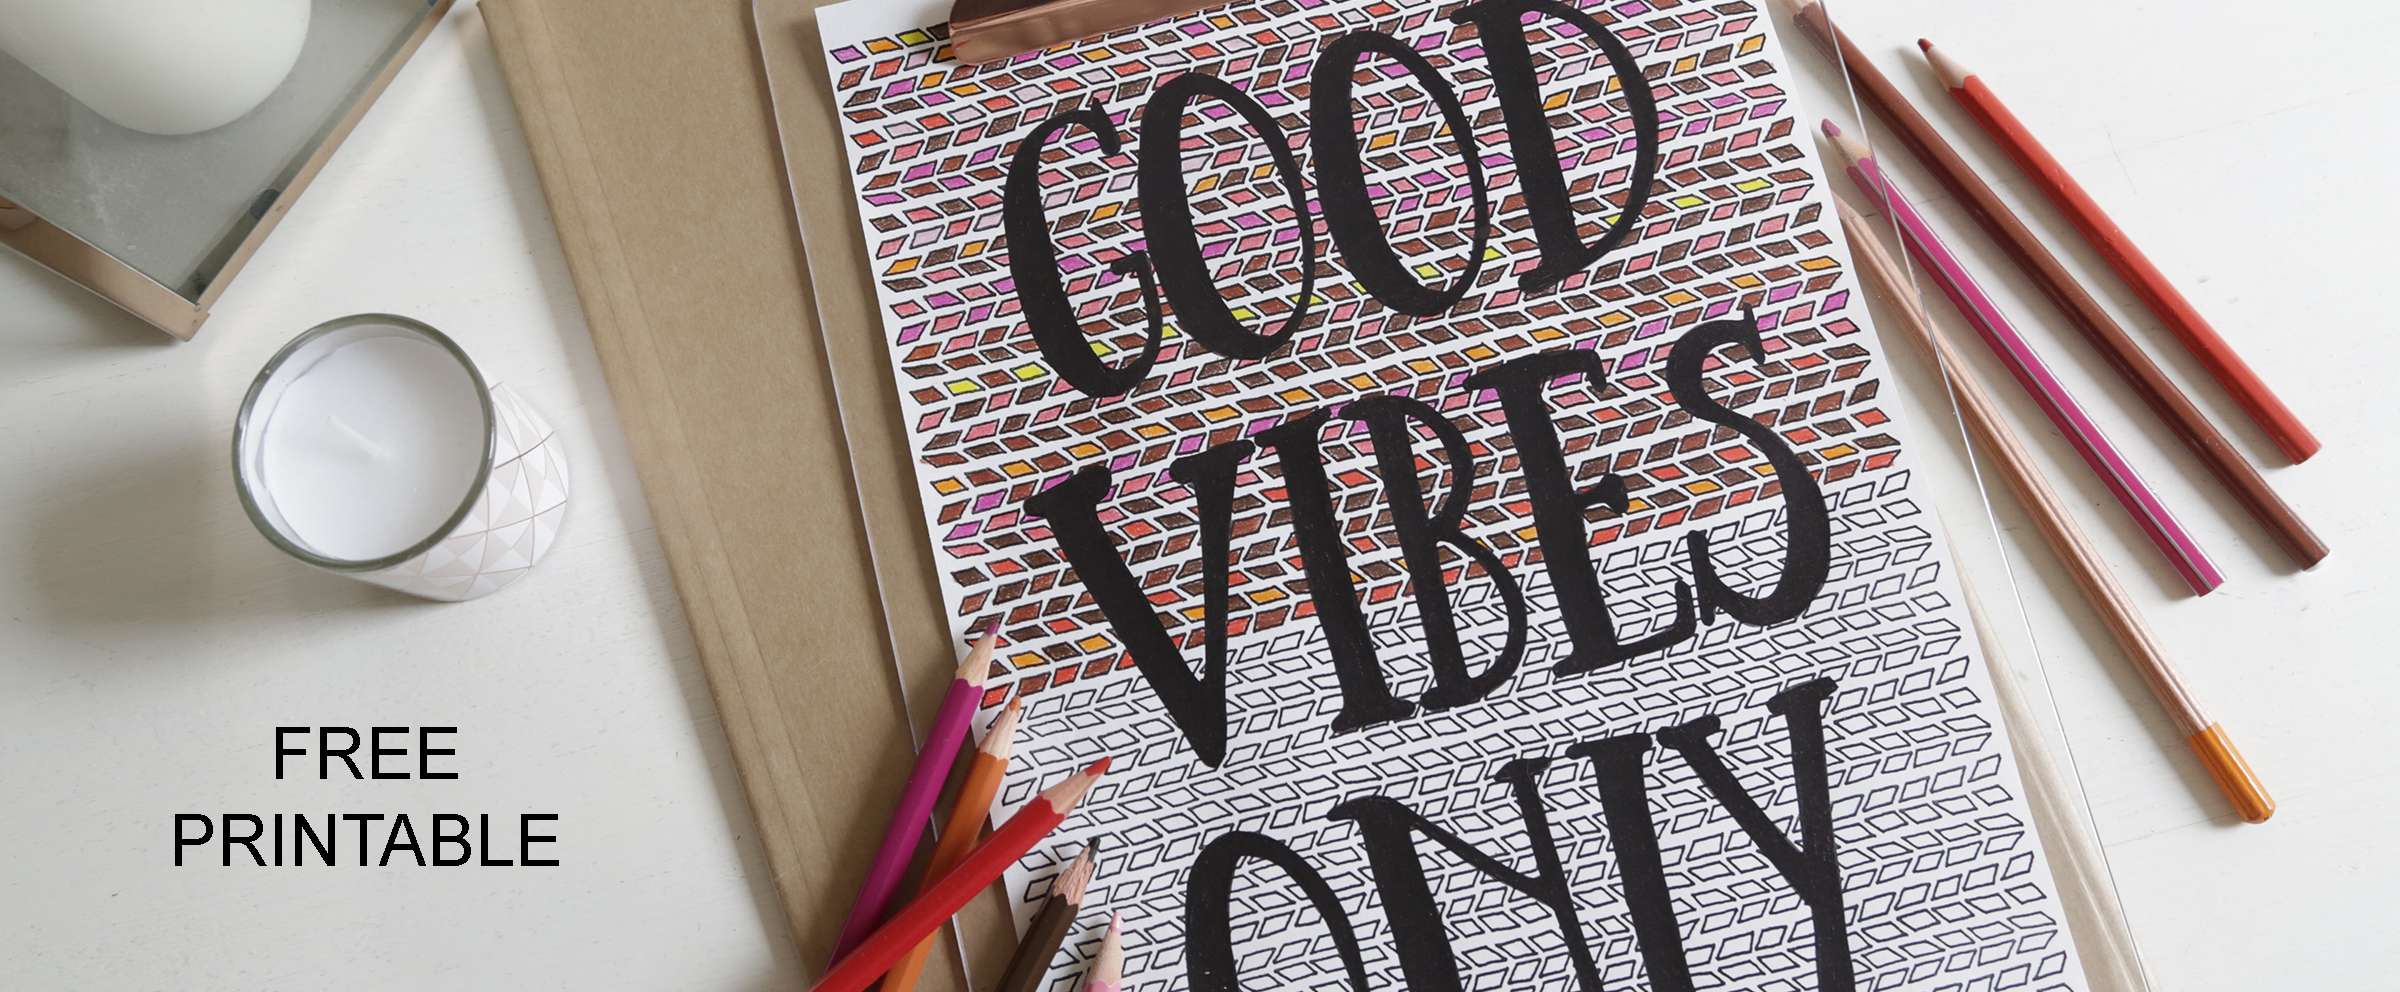 GOOD
VIBES
ONLY
FREE
PRINTABLE